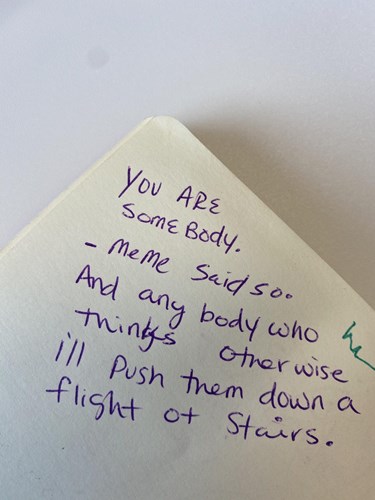 YOU ARE
SOMEBODY.
- Meme Said so.
And any body who
thinks otherwise
i'll Push them down a
flight of Stairs.